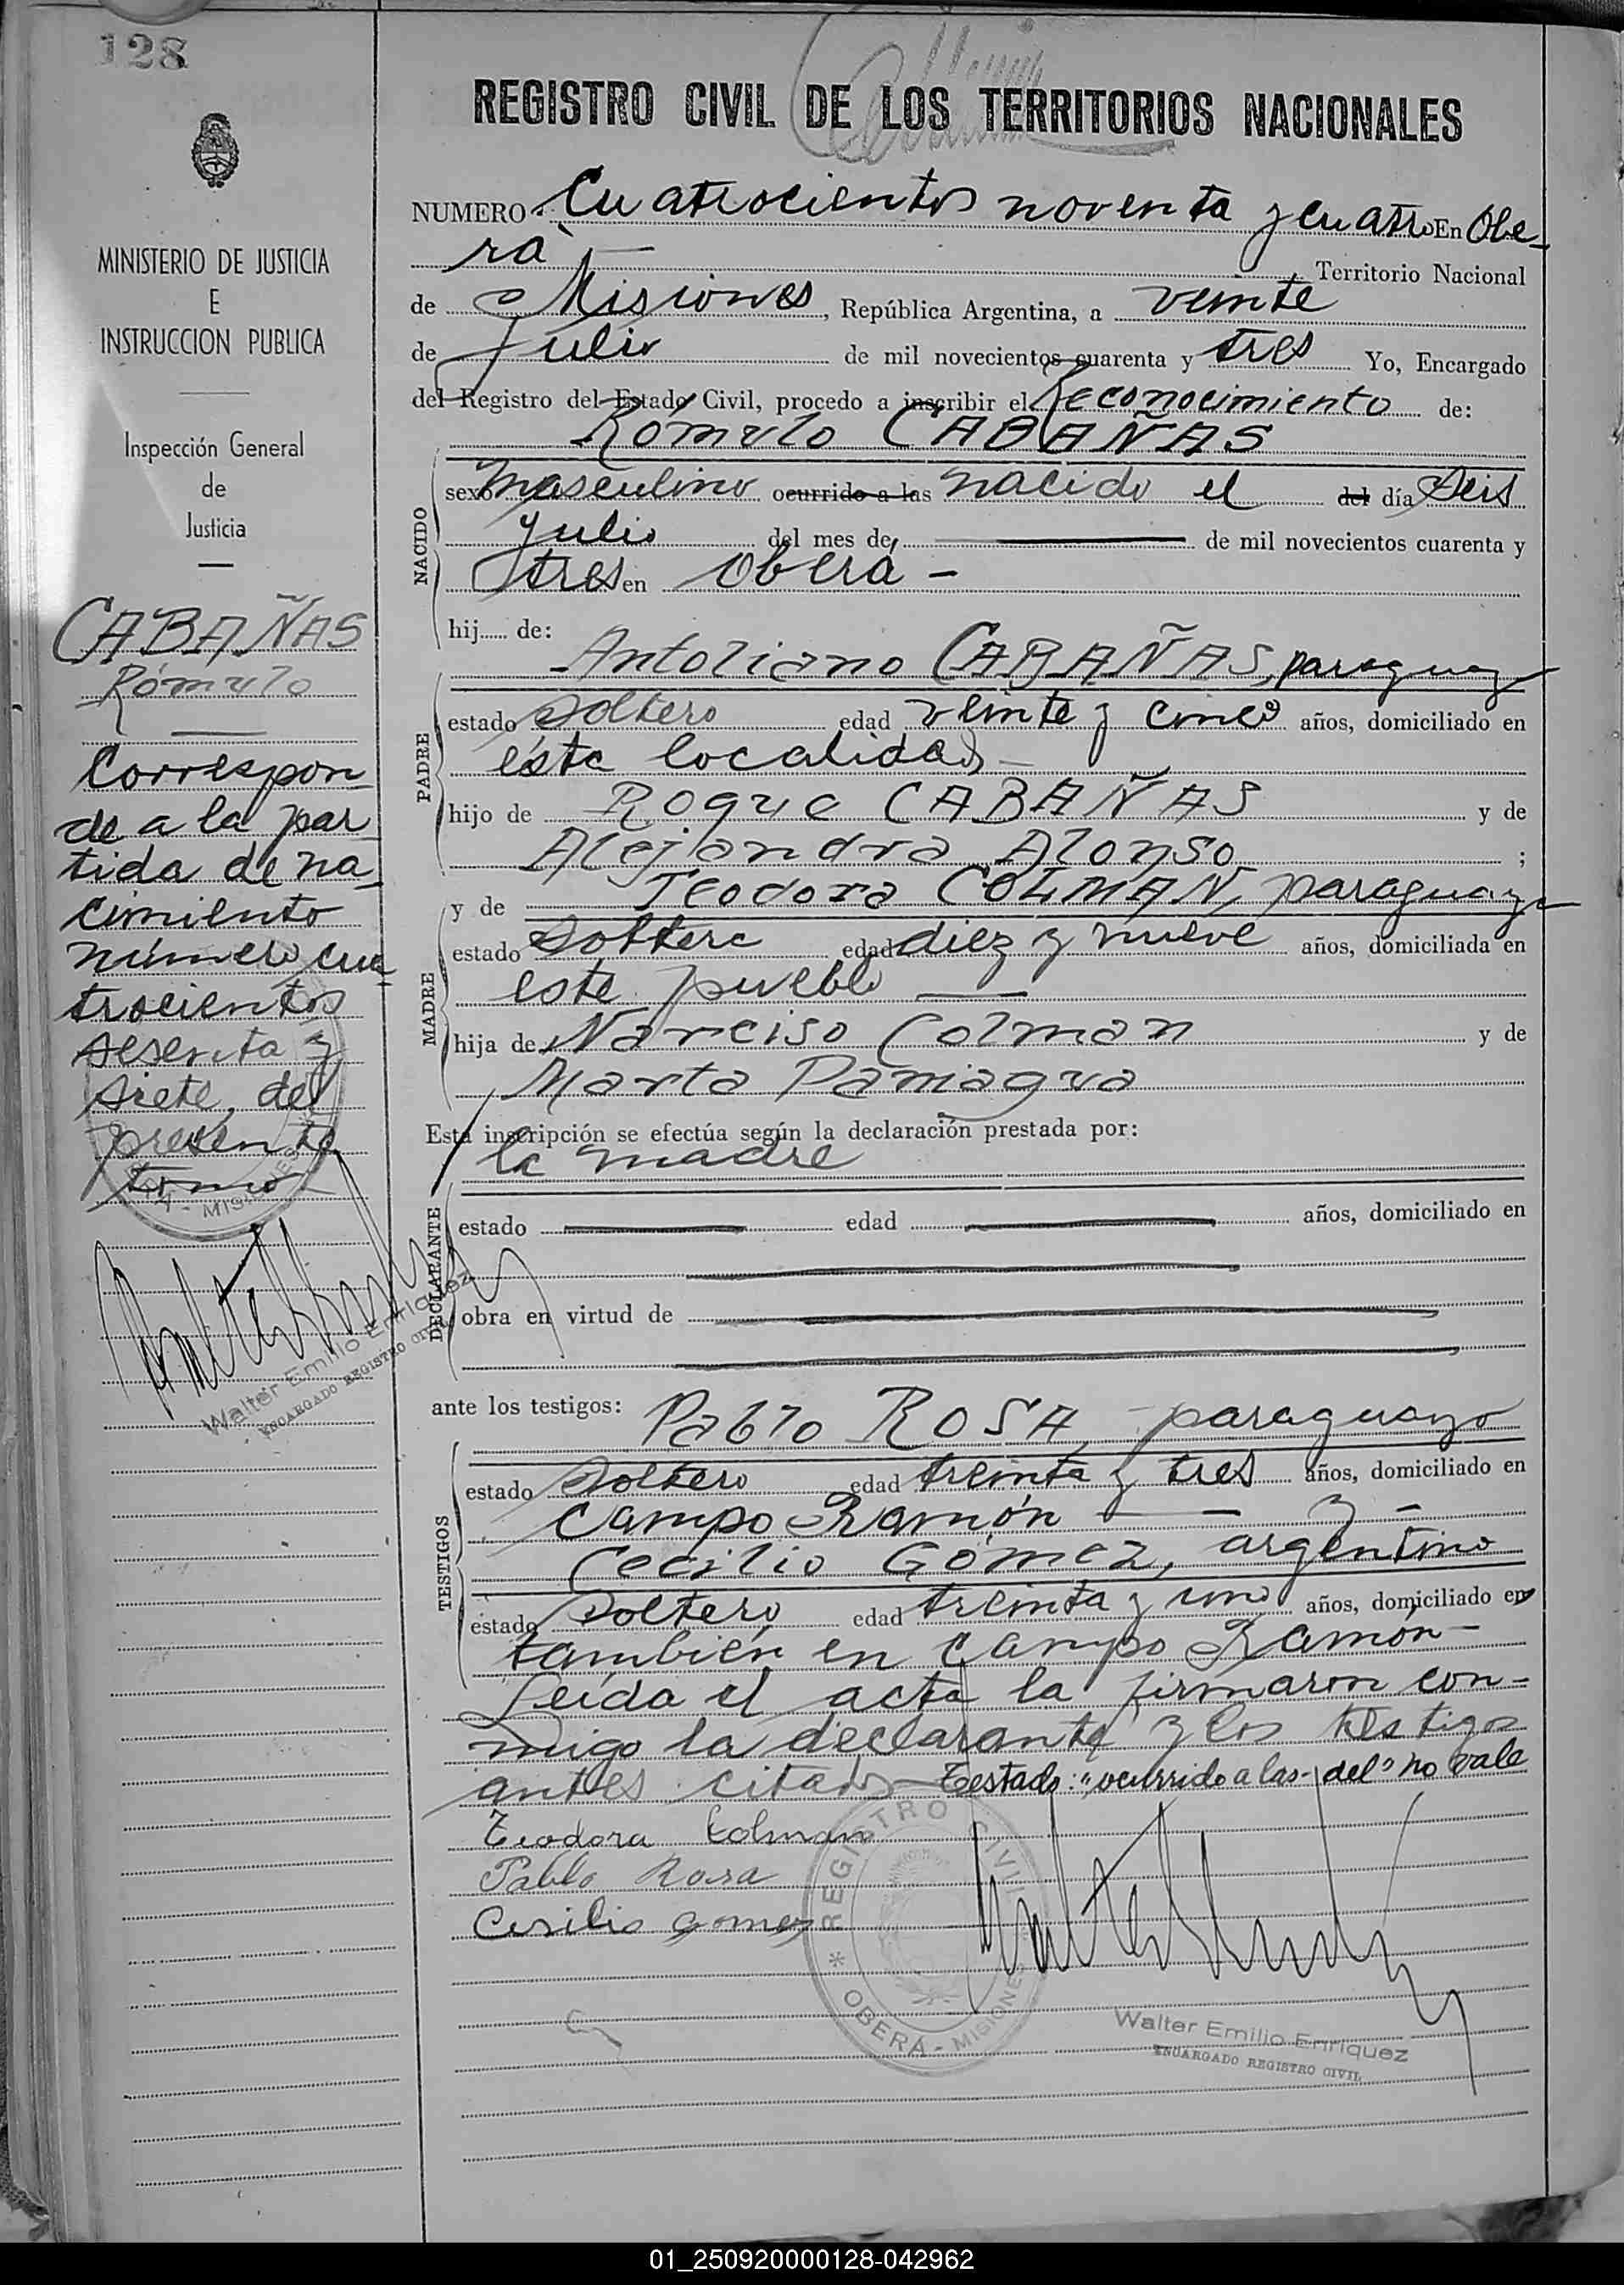 128
MINISTERIO DE JUSTICIA
E
INSTRUCCION PUBLICA
Inspección General
de
Justicia
CABAÑAS
Rómulo
Correspon-
de a la par-
tida de na-
cimiento
número cua-
trocientos
sesenta y
siete, del
presente
tomo
MISIONES
Walter Emilio Enriquez
ENCARGADO REGISTRO CIVIL
REGISTRO CIVIL DE LOS TERRITORIOS NACIONALES
NUMERO Cuatrocientos noventa y cuatro En Obe-
rá Territorio Nacional
de Misiones, República Argentina, a veinte
de julio de mil novecientos cuarenta y tres Yo, Encargado
del Registro del Estado Civil, procedo a inscribir el Reconocimiento de:
Rómulo CABAÑAS
NACIDO
sexo masculino ocurrido a las nacido el del día seis
julio del mes de de mil novecientos cuarenta y
tres en Oberá -
hij de:
Antoliano CABAÑAS, paraguay
PADRE
estado soltero edad veinte y cinco años, domiciliado en
ésta localidad -
hijo de Roque CABAÑAS y de
Alejandra Alonso ;
y de Teodora COLMAN, paraguaya
MADRE
estado soltera edad diez y nueve años, domiciliada en
este pueblo
hija de Narciso Colman y de
Marta Paniagua
Esta inscripción se efectúa según la declaración prestada por:
la madre
DECLARANTE
estado edad años, domiciliado en
obra en virtud de
ante los testigos: Pablo ROSA, paraguayo
TESTIGOS
estado soltero edad treinta y tres años, domiciliado en
Campo Ramón - y -
Cecilio Gómez, argentino
estado soltero edad treinta y uno años, domiciliado en
también en Campo Ramón -
Leída el acta la firmaron con-
migo la declarante y los testigos
antes citados - Testado: "ocurrido a las - del" no vale
Teodora Colman
Pablo Rosa
Cesilio gomez
REGISTRO CIVIL
OBERÁ - MISIONES
Walter Emilio Enriquez
ENCARGADO REGISTRO CIVIL
01_250920000128-042962